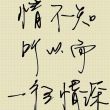 情不知
所以而
一往情深